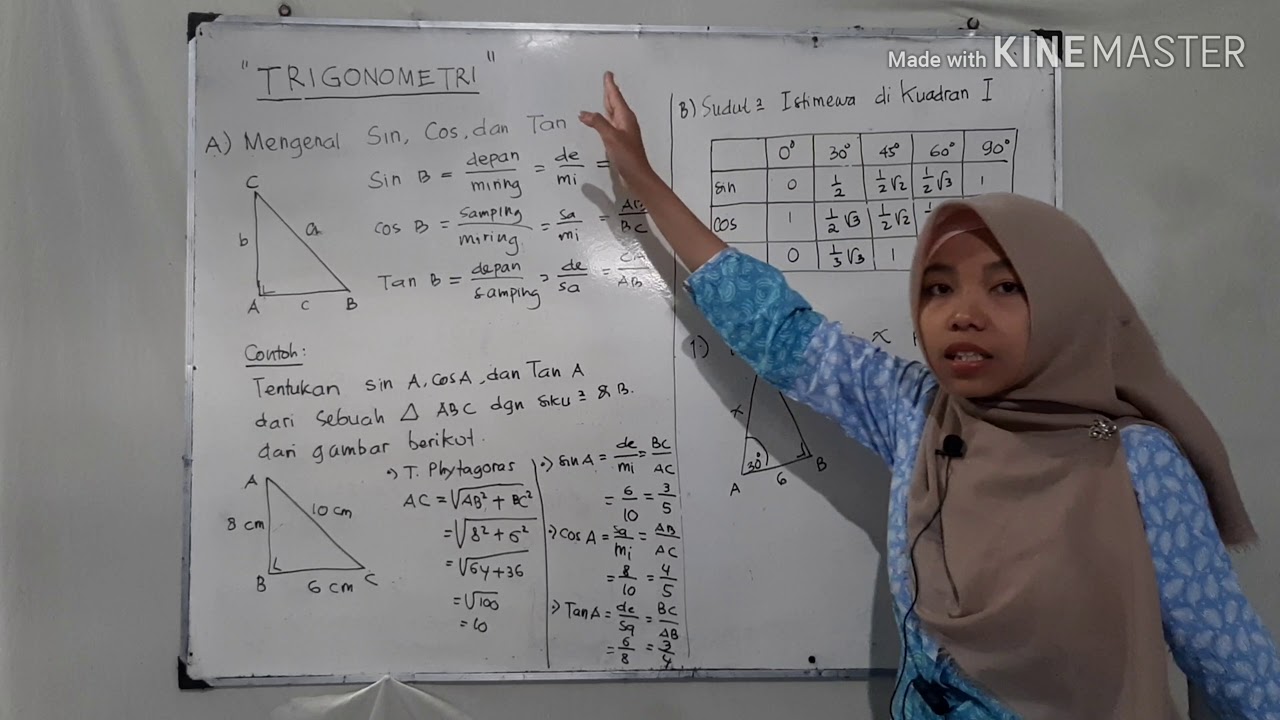 Made with KINEMASTER
"TRIGONOMETRI"
A) Mengenal Sin, Cos, dan Tan
Sin B = depan/miring = de/mi =
cos B = samping/miring = sa/mi = AB/BC
Tan B = depan/samping = de/sa = CA/AB
C
b
a
A
c
B
Contoh:
Tentukan sin A, cos A, dan Tan A
dari sebuah △ ABC dgn siku² & B.
dari gambar berikut.
A
8 cm
10 cm
B
6 cm
C
T. Phytagoras
AC = √AB² + BC²
= √8² + 6²
= √64+36
= √100
= 10
sin A = de/mi = BC/AC
= 6/10 = 3/5
cos A = sa/mi = AB/AC
= 8/10 = 4/5
Tan A = de/sa = BC/AB
= 6/8 = 3/4
B) Sudut² Istimewa di Kuadran I
0° 30° 45° 60° 90°
sin 0 1/2 1/2√2 1/2√3 1
cos 1 1/2√3 1/2√2
0 1/3√3 1
1.)
x
x
30°
A
6
B